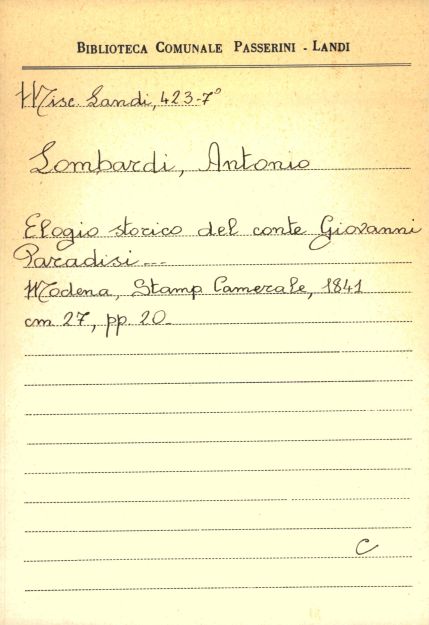 BIBLIOTECA COMUNALE PASSERINI - LANDI
Misc. Landi, 423-7°
Lombardi, Antonio
Elogio storico del conte Giovanni
Paradisi...
Modena, Stamp. Camerale, 1841
cm 27, pp. 20.
C